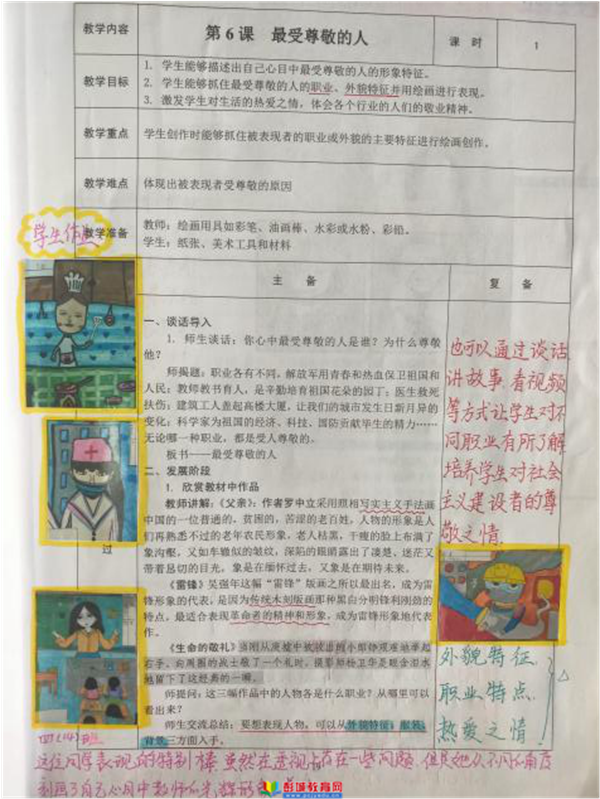 教学内容
第6课 最受尊敬的人
课 时
1
教学目标
1. 学生能够描述出自己心目中最受尊敬的人的形象特征。
2. 学生能够抓住最受尊敬的人的职业、外貌特征并用绘画进行表现。
3. 激发学生对生活的热爱之情，体会各个行业的人们的敬业精神。
教学重点
学生创作时能够抓住被表现者的职业或外貌的主要特征进行绘画创作。
教学难点
体现出被表现者受尊敬的原因
学生作业
教学准备
教师：绘画用具如彩笔、油画棒、水彩或水粉、彩铅。
学生：纸张、美术工具和材料
主 备
复 备
一、谈话导入
1. 师生谈话：你心中最受尊敬的人是谁？为什么尊敬
他？
师揭题：职业各有不同，解放军用青春和热血保卫祖国和
人民；教师教书育人，是辛勤培育祖国花朵的园丁；医生救死
扶伤；建筑工人盖起高楼大厦，让我们的城市发生日新月异的
变化；科学家为祖国的经济、科技、国防贡献毕生的精力……
无论哪一种职业，都是受人尊敬的。
板书——最受尊敬的人
二、发展阶段
1. 欣赏教材中作品
教师讲解：《父亲》：作者罗中立采用照相写实主义手法画
中国的一位普通的，贫困的，苦涩的老百姓，人物的形象是人
们再熟悉不过的老年农民形象，老人枯黑，干瘦的脸上布满了
象沟壑，又如车辙似的皱纹，深陷的眼睛露出了凄楚，迷茫又
带着恳切的目光。象是在缅怀过去，又象是在期待未来。
《雷锋》吴强年这幅“雷锋”版画之所以最出名，成为雷
锋形象的代表，是因为传统木刻版画那种黑白分明锋利刚劲的
特点，最适合表现革命者的精神和形象，成为雷锋形象地代表
作。
《生命的敬礼》当刚从废墟中被救出的小郎铮艰难地举起
右手，向周围的战士敬了一个礼时，摄影师杨卫华是眼含泪水
地留下了这经典的一瞬。
师提问：这三幅作品中的人物各是什么职业？从哪里可以
看出来？
师生交流总结：要想表现人物，可以从外貌特征；服装；
背景三方面入手。
过
也可以通过谈话
讲故事.看视频
等方式让学生对不
同职业有所了解
培养学生对社会
主义建设者的尊
敬之情.
外貌特征.
职业特点.
热爱之情!
这位同学表现的特别棒.虽然在透视上存在一些问题.但其
彭城教育网